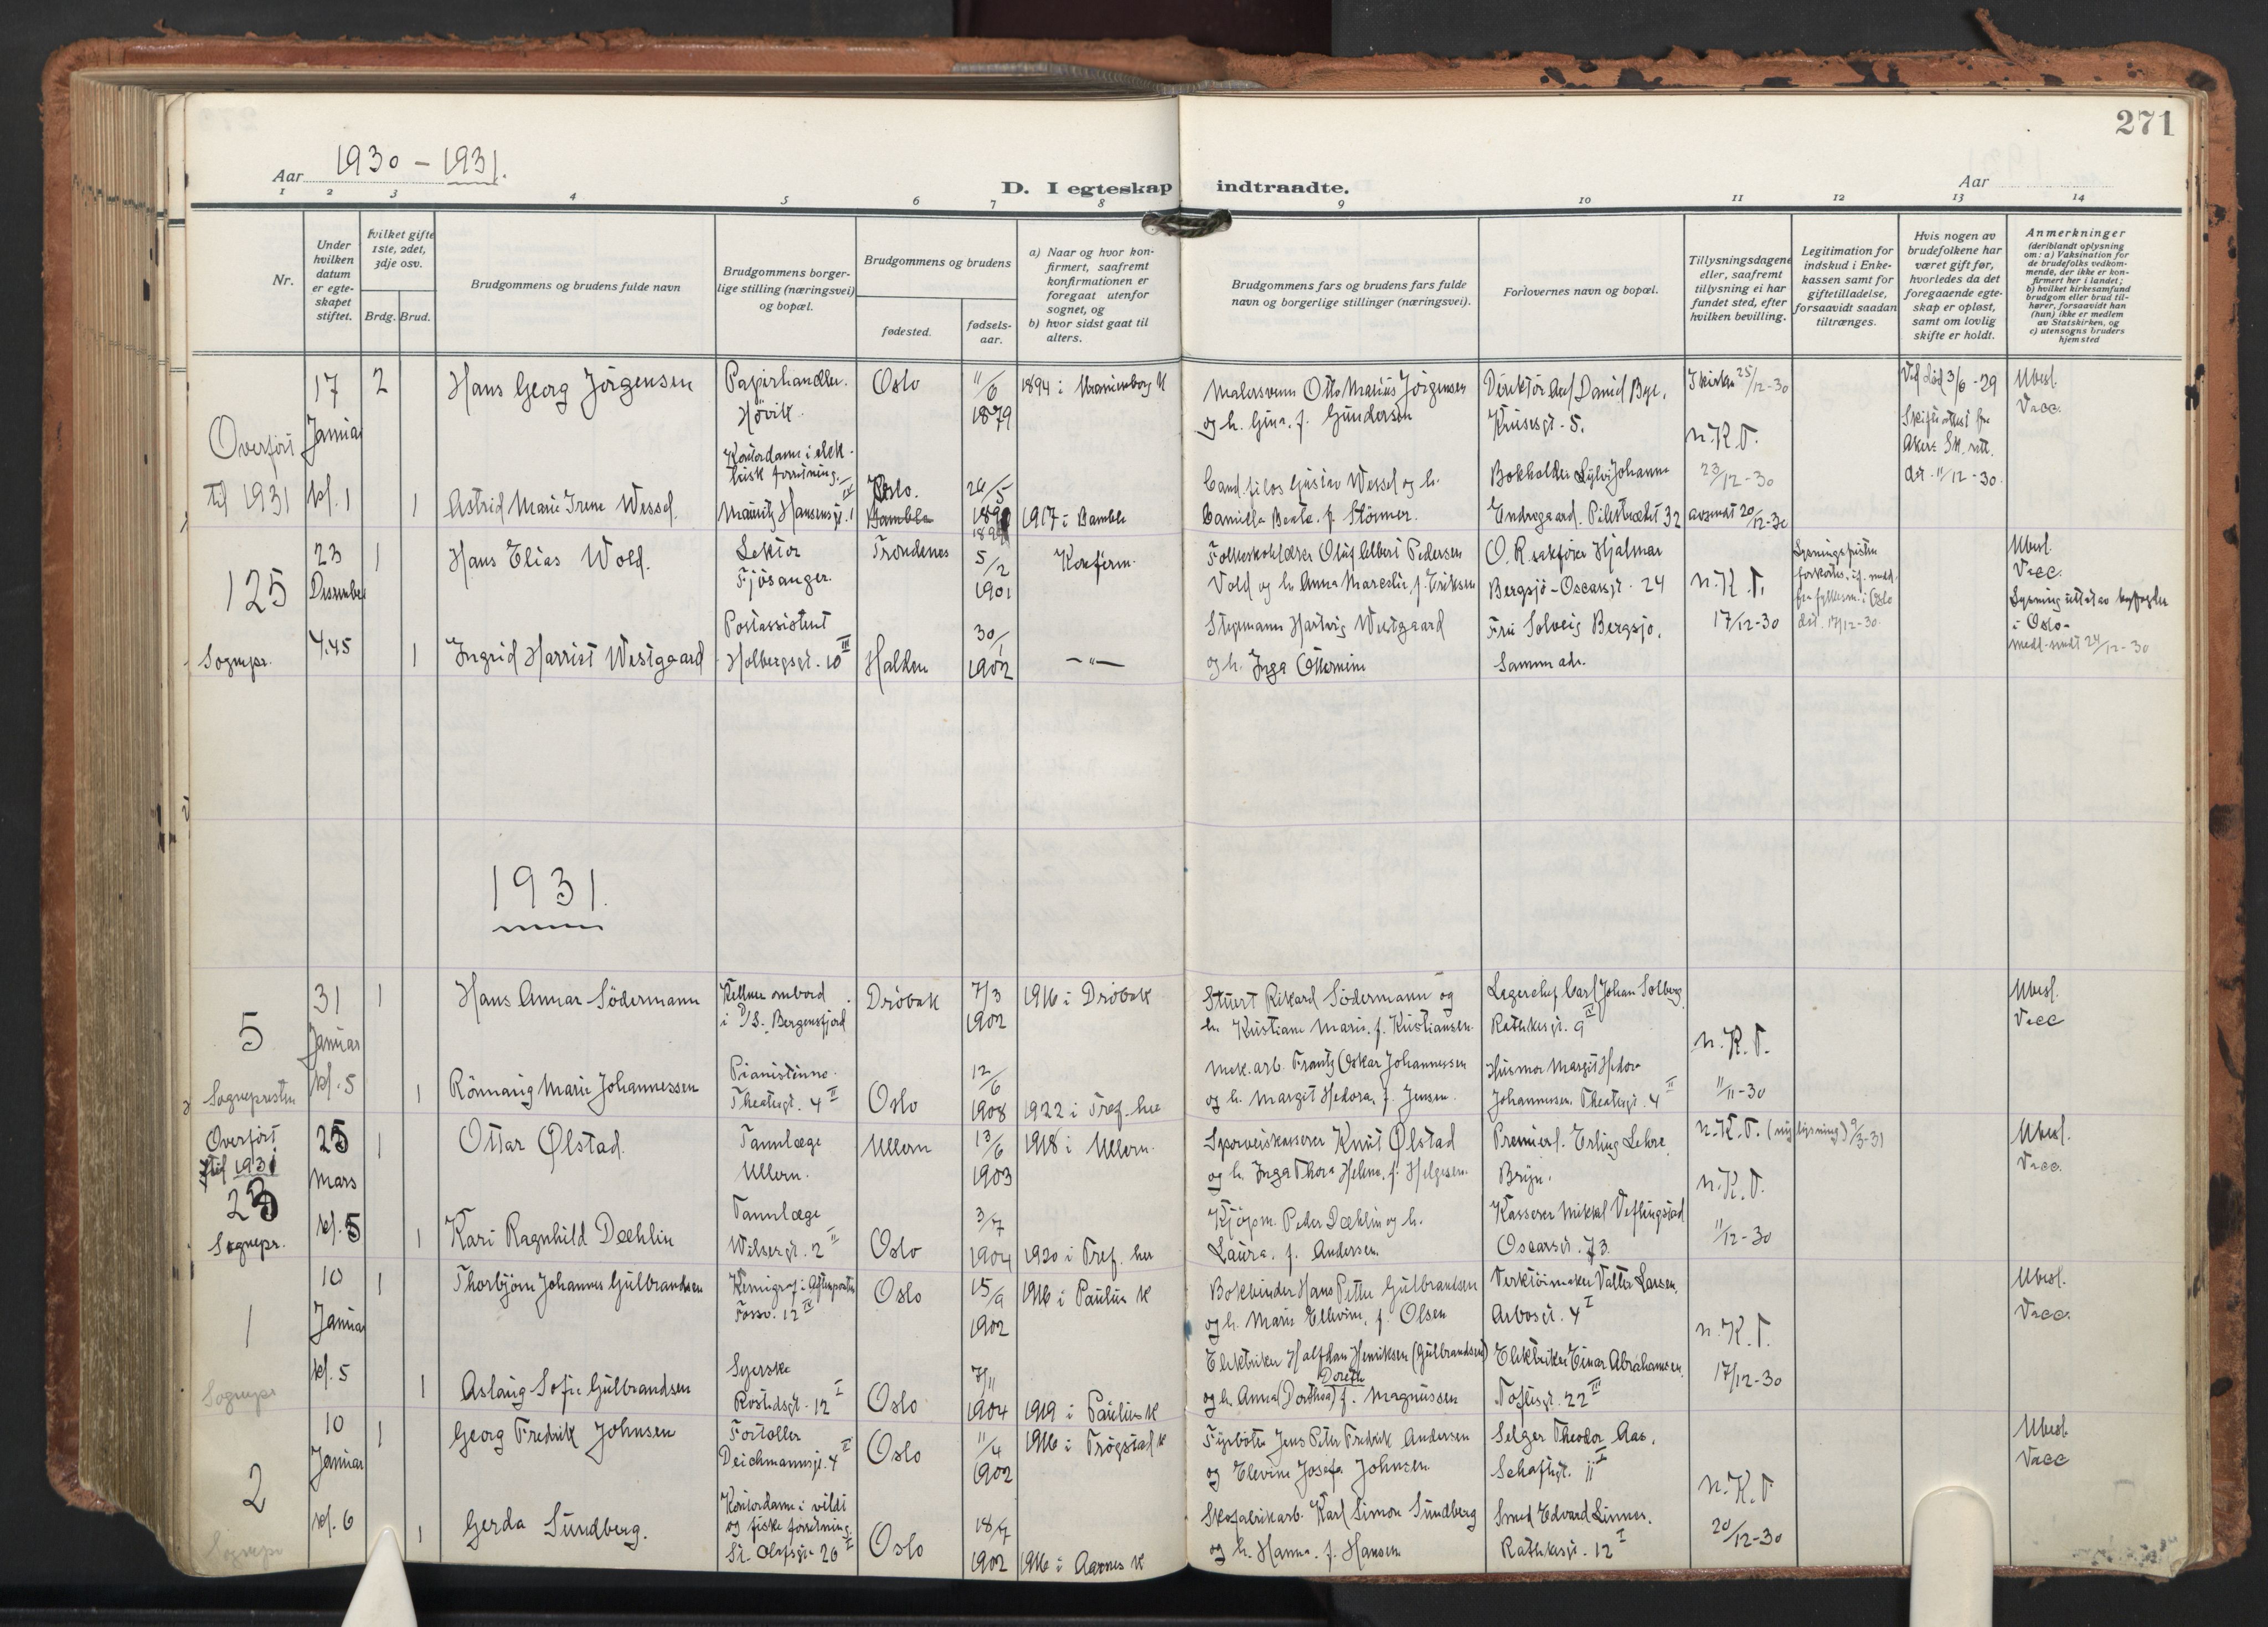 271
Aar 1930 - 1931.
D. I egteskap indtraadte.
Aar
1 2 3 4 5 6 7 8 9 10 11 12 13 14
Nr.
Under hvilken datum er egteskapet stiftet.
hvilket gifte 1ste, 2det, 3dje osv.
Brdg. Brud.
Brudgommens og brudens fulde navn
Brudgommens borgerlige stilling (næringsvei) og bopæl.
Brudgommens og brudens
fødested.
fødselsaar.
a) Naar og hvor konfirmert, saafremt konfirmationen er foregaat utenfor sognet, og
b) hvor sidst gaat til alters.
Brudgommens fars og brudens fars fulde navn og borgerlige stillinger (næringsvei).
Forlovernes navn og bopæl.
Tillysningsdagene eller, saafremt tillysning ei har fundet sted, efter hvilken bevilling.
Legitimation for indskud i Enkekassen samt for giftetilladelse, forsaavidt saadan tiltrænges.
Hvis nogen av brudefolkene har været gift før, hvorledes da det foregaaende egteskap er opløst, samt om lovlig skifte er holdt.
Anmerkninger (deriblandt oplysning om: a) Vaksination for de brudefolks vedkommende, der ikke er konfirmert her i landet; b) hvilket kirkesamfund brudgom eller brud tilhører, forsaavidt han (hun) ikke er medlem av Statskirken, og c) utensogns bruders hjemsted
Overført til 1931
17 Januar kl. 1
2
Hans Georg Jörgensen
Papirhandler. Hövik.
Oslo
11/6 1879
1894 i Uranienborg K
Malersvenn Otto Marius Jörgensen og h. Gina. f. Gundersen
Direktör Daniel Bye. Kruses gt. 5.
I kirken 25/12-30
n.K.T.
23/12-30
avsendt 20/12-30
Ved död 3/6-29
Skifteattest fra Akers Sk. rett. dat. 11/12-30
Ubesl. Vacc.
1
Astrid Marie Irene Wessel.
Kontordame i elektrisk forretning. Mauritz Hansensgt. 1 IV
Oslo. Bamble
26/5
1917 i Bamble
Cand. filos Gustav Wessel og h. Camilla Beate. f. Störmer.
Bokholder Sylvi Johanne Endregaard. Pilestredet 32
125
Sognepr.
23 Desember 4.45
1
Hans Elias Wold.
Lektor Fjösanger.
Trondenes
5/2 1901
Konferm.
Folkeskolelærer Oluf Albert Pedersen Vold og h. Anna Marselie, f. Eriksen
O. R. sakförer Hjalmar Bergsjö - Oscarsgt. 24
n.K.T.
17/12-30
Lysningsfristen forkortes, if. medd. fra fylkesm. i Oslo dat. 17/12-30.
Ubesl. Vacc.
Lysning utstet av byfogden i Oslo -
medd. sendt 24/12-30
1
Ingrid Harriet Westgaard
Postassistent Holbergsgt. 10 III
Halden
30/1 1902
- " -
Stegemann Hartvig Westgaard og h. Inga Ottermine
Fru Solveig Bergsjö. Samme adr.
1931.
5
Sognepresten
31 Januar kl. 5
1
Hans Annar Södermann
Kellner ombord i D/S. Bergensfjord
Dröbak
7/3 1902
1916 i Dröbak
Stuert Rikard Södermann og h. Kristiane Marie. f. Kristiansen.
Lagerchef Carl Johan Solberg Rathkesgt. 9 IV
n.K.T.
11/11-30
Ubesl. Vacc
1
Rönnaug Marie Johannessen
Pianistinne. Theatergt. 4 II
Oslo
12/6 1908
1922 i Tref. her
Mek. arb. Frantz Oskar Johannessen og h. Margit Hedora, f. Jensen.
Husmor Margit Hedora Johannessen. Theatergt. 4 II
Overført til 1931
23
Sognepr.
25 Mars kl. 5
1
Ottar Ølstad.
Tannlæge Ullern.
Ullern
13/6 1903
1918 i Ullern.
Sporveiskasserer Knut Ølstad og h. Inga Thora Helene, f. Helgesen.
Premierl. Erling Lehre. Bryn.
n.K.T. (ny lysning) 9/3-31
n.K.T.
11/12-30
Ubesl. Vacc.
1
Kari Ragnhild Dæhlin
Tannlæge Wilsesgt. 2 II
Oslo
3/7 1904
1920 i Tref. her
Kjöpm. Peder Dæhlin og h. Laura. f. Andersen.
Kasserer Mikkel Veflingstad Oscarsgt. 73.
1
Sognepr
10 Januar kl. 5
1
Thorbjörn Johannes Gulbrandsen
Kemigraf i Aftenposten Fossv. 12 IV
Oslo
15/9 1902
1916 i Paulus K
Bokbinder Hans Petter Gulbrandsen og h. Marie Ellevine, f. Olsen
Verktöimaker Valter Larsen. Arbosgt. 4 I
n.K.T.
17/12-30
Ubesl. Vacc.
1
Aslaug Sofie Gulbrandsen
Syerske Rostedsgt. 12 I
Oslo
7/11 1904
1919 i Paulus K
Elektriker Halfdan Henriksen (Gulbrandsen) og h. Anna (Dorthea) Doreth f. Magnussen
Elektriker Einar Abrahamsen. Toftesgt. 22 III
2
Sognepr
10 Januar kl. 6
1
Georg Fredrik Johnsen
Fortoller Deichmannsgt. 4 II
Oslo
11/4 1902
1916 i Trögstad K
Fyrböter Jens Peter Fredrik Andersen og Elevine Josefa Johnsen
Selger Theodor Aas. Schaftsgt. 11 I
n.K.T
20/12-30
Ubesl. Vacc
1
Gerda Sundberg.
Kontordame i vildt og fiske forretning. St. Olafsgt. 26 I
Oslo
18/7 1902
1916 i Aarnes K
Skofabrikarb. Karl Simon Sundberg og h. Hanna. f. Hansen
Smed Edvard Linnes. Rathkesgt. 12 I